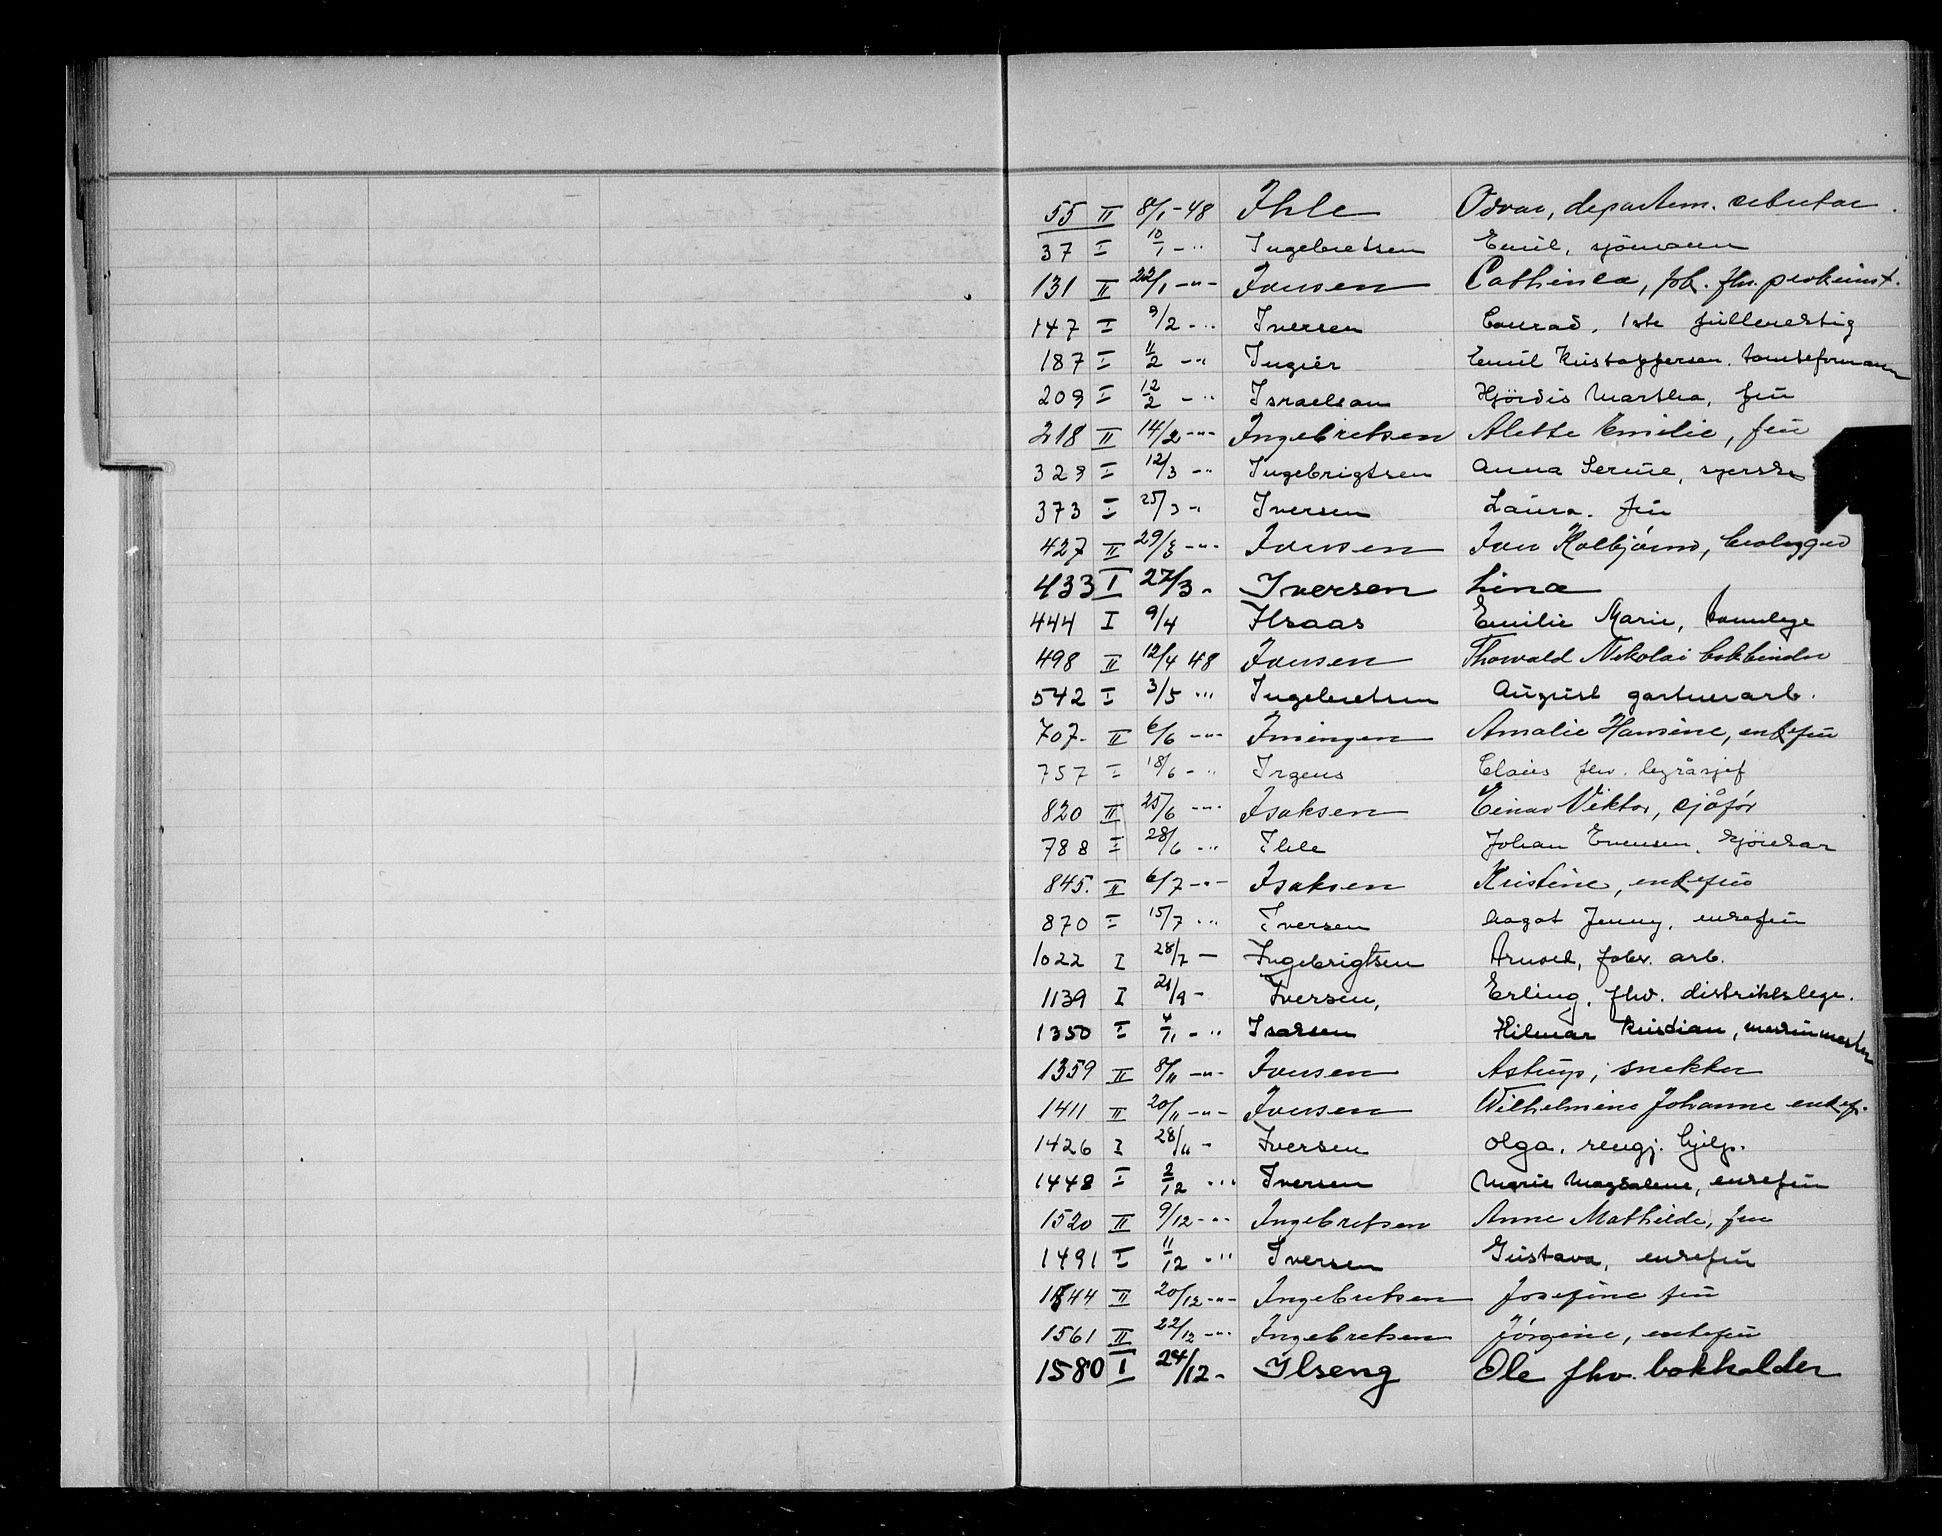 55 II 8/1 -48 Ihle Odvar, departem. sekretær.
37 I 10/1 - " Ingebretsen Emil, sjömann
131 II 22/1 - " - Iversen Cathinca, fhv.
147 I 9/2 - " Iversen Conrad, 1ste fullmektig
187 I 11/2 - " Ingier Emil Kristoffersen. tomteformann
209 I 12/2 - " Israelsen Hjördis Martha, fru
218 II 14/2 - " - Ingebretsen Alette Emilie, fru
329 I 12/3 - " Ingebrigtsen Anna Serine, syerske
373 I 25/3 - " Iversen Laura. fru
427 II 29/3 - " - Iversen Iver Kolbjørn,
433 I 27/3 - Iversen Lina
444 I 9/4 Ilsaas Emilie Marie, tannlege
498 II 12/4 48 Iversen Thorvald Nikolai bokbinder
542 I 3/5 " Ingebretsen August gartnerarb.
707. II 6/6 - " - Imingen Amalie Hansine, enkefru
757 I 18/6 - " Irgens Claus fhv. byråsjef
820 II 25/6 - " - Isaksen Einar Viktor, sjåfør
788 I 28/6 - " Ihle Johan Evensen. kjörekar
845. II 6/7 - " - Isaksen Kristine, enkefru
870 I 15/7 " Iversen Aagot Jenny, enkefru
1022 I 28/7 - Ingebrigtsen Arnold, fabr. arb.
1139 I 21/9 - Iversen, Erling, fhv. distriktslege.
1350 I 4/11 - " Isaksen Hilmar Kristian, maskinmester
1359 II 8/11 - " - Iversen Astrup, snekker
1411 II 20/11 - " - Iversen Wilhelmine Johanne enkef.
1426 I 28/11 - Iversen Olga, rengj. hjelp.
1448 I 2/12 " Iversen Marie Magdalene, enkefru
1520 II 9/12 - " - Ingebretsen Anne Mathilde, fru
1491 I 11/12 " Iversen Gustava, enkefru
1544 II 20/12 - " - Ingebretsen Josefine fru
1561 II 22/12 - " - Ingebretsen Jørgine, enkefru
1580 I 24/12 - Ilseng Ole fhv. bokholder